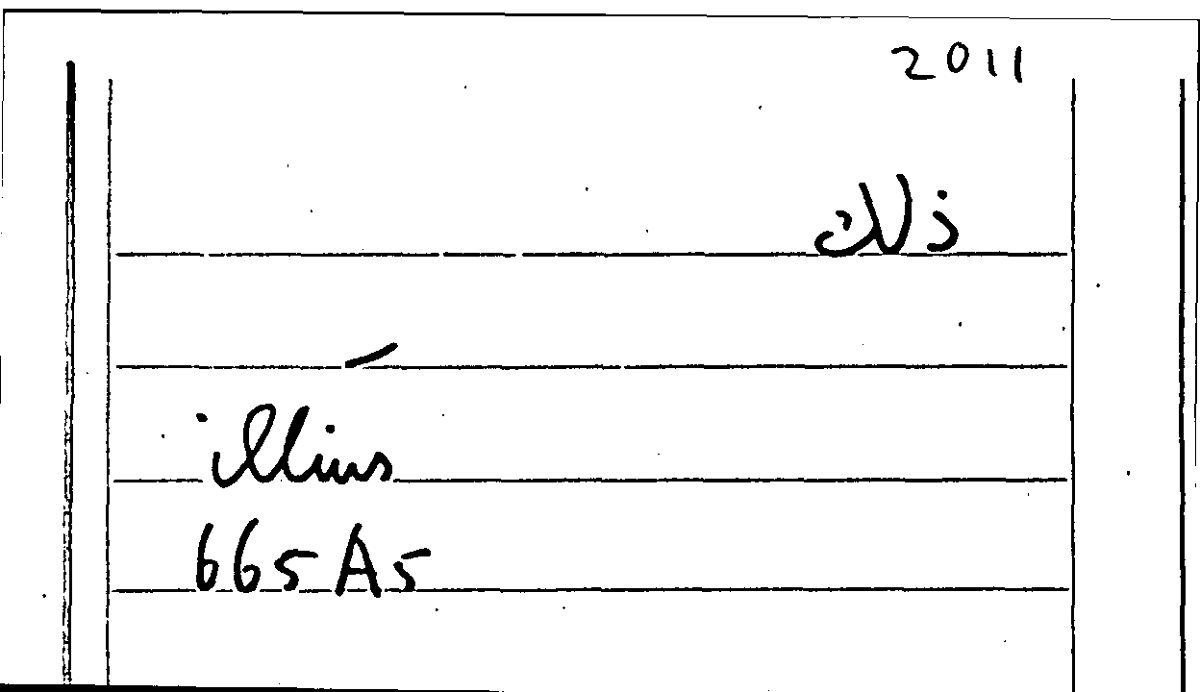 2011
ذلك
illius
665 A5